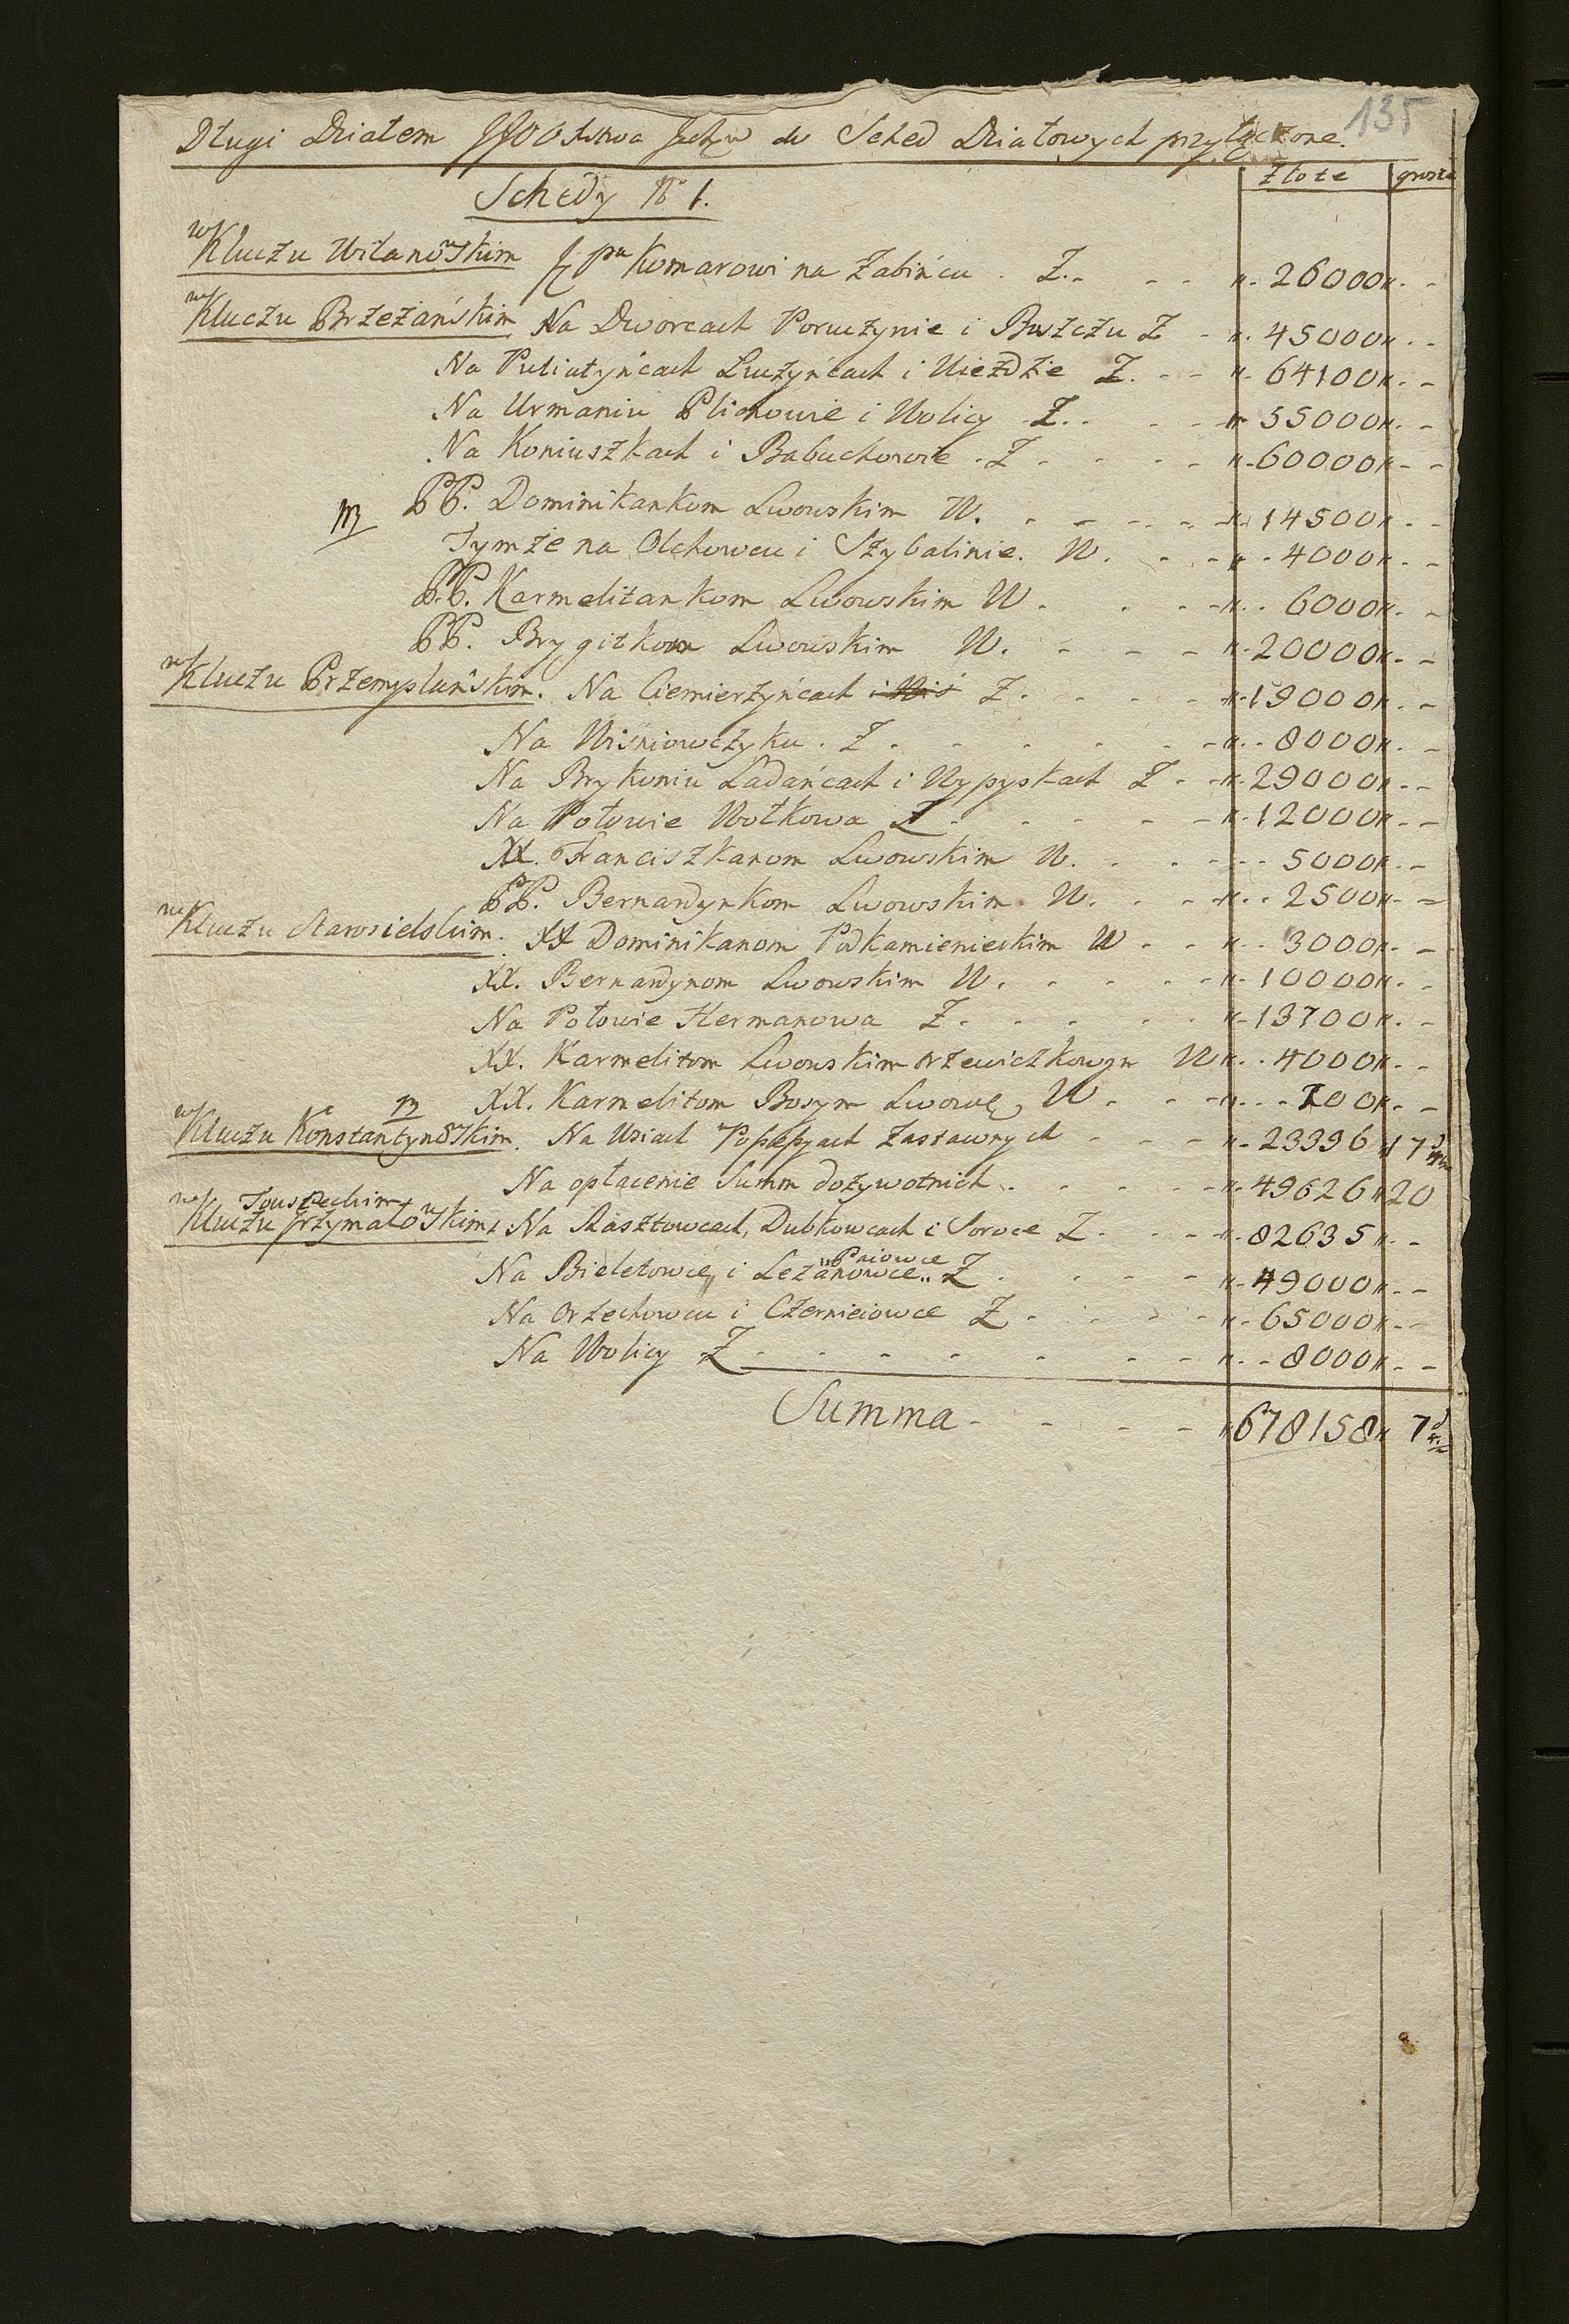 135
Długi Działem JJOO Państwa do Sched Działowych przyłączone.
Złote grosze
Schedy N 1.
w Kluczu Wilanowskim JPu Komarowi na Zabińcu . Z. - - 26000 - -
w Kluczu Brzeżańskim Na Dworcach Poruczynie i Buszczu Z - 45000 - -
Na Puliatyńcach Luczyńcach i Uieździe Z. - - 64100 - -
Na Urmaniu Plichowie i Wolicy Z. - - 55000 - -
Na Koniuszkach i Babuchowie . Z - - 60000 - -
PP. Dominikankom Lwowskim W. - - 14500 - -
Tymże na Olchowcu i Szybalinie. W. - - 4000 - -
PP. Karmelitankom Lwowskim W. - - 6000 - -
PP. Brygitkom Lwowskim W. - - 20000 - -
w Kluczu Przemyslańskim. Na Ciemierzyńcach i Wiś Z. - - 19000 - -
Na Wiśniowczyku . Z - - 8000 - -
Na Brykoniu Ladańcach i Wypyskach Z - - 29000 - -
Na Połowie Wołkowa Z - - 12000 - -
XX. Franciszkanom Lwowskim W. - - 5000 - -
PP. Bernardynkom Lwowskim W. - - 2500 - -
w Kluczu Starosielskim. XX Dominikanom Podkamienieckim W - - 3000 - -
XX. Bernardynom Lwowskim W. - - 10000 - -
Na Połowie Hermanowa Z. - - 13700 - -
XX. Karmelitom Lwowskim trzewiczkowym W - - 4000 - -
XX. Karmelitom Bosym Lwow W - - 700 - -
w Kluczu Konstantynowskim. Na Wsiach Popepyach Zastawnych - - 23396 17
Na opłacenie Summ dożywotnich - - 49626 20
Touszeckim
w Kluczu Grzymałowskim, Na Rasztowcach, Dubkowcach i Soroce Z - - 82635 - -
Paiowce
Na Bieletowie, i Leżanowce Z - - 49000 - -
Na Orzechowcu i Czernielowce Z - - 65000 - -
Na Wolicy Z - - 8000 - -
Summa - - 678158 7